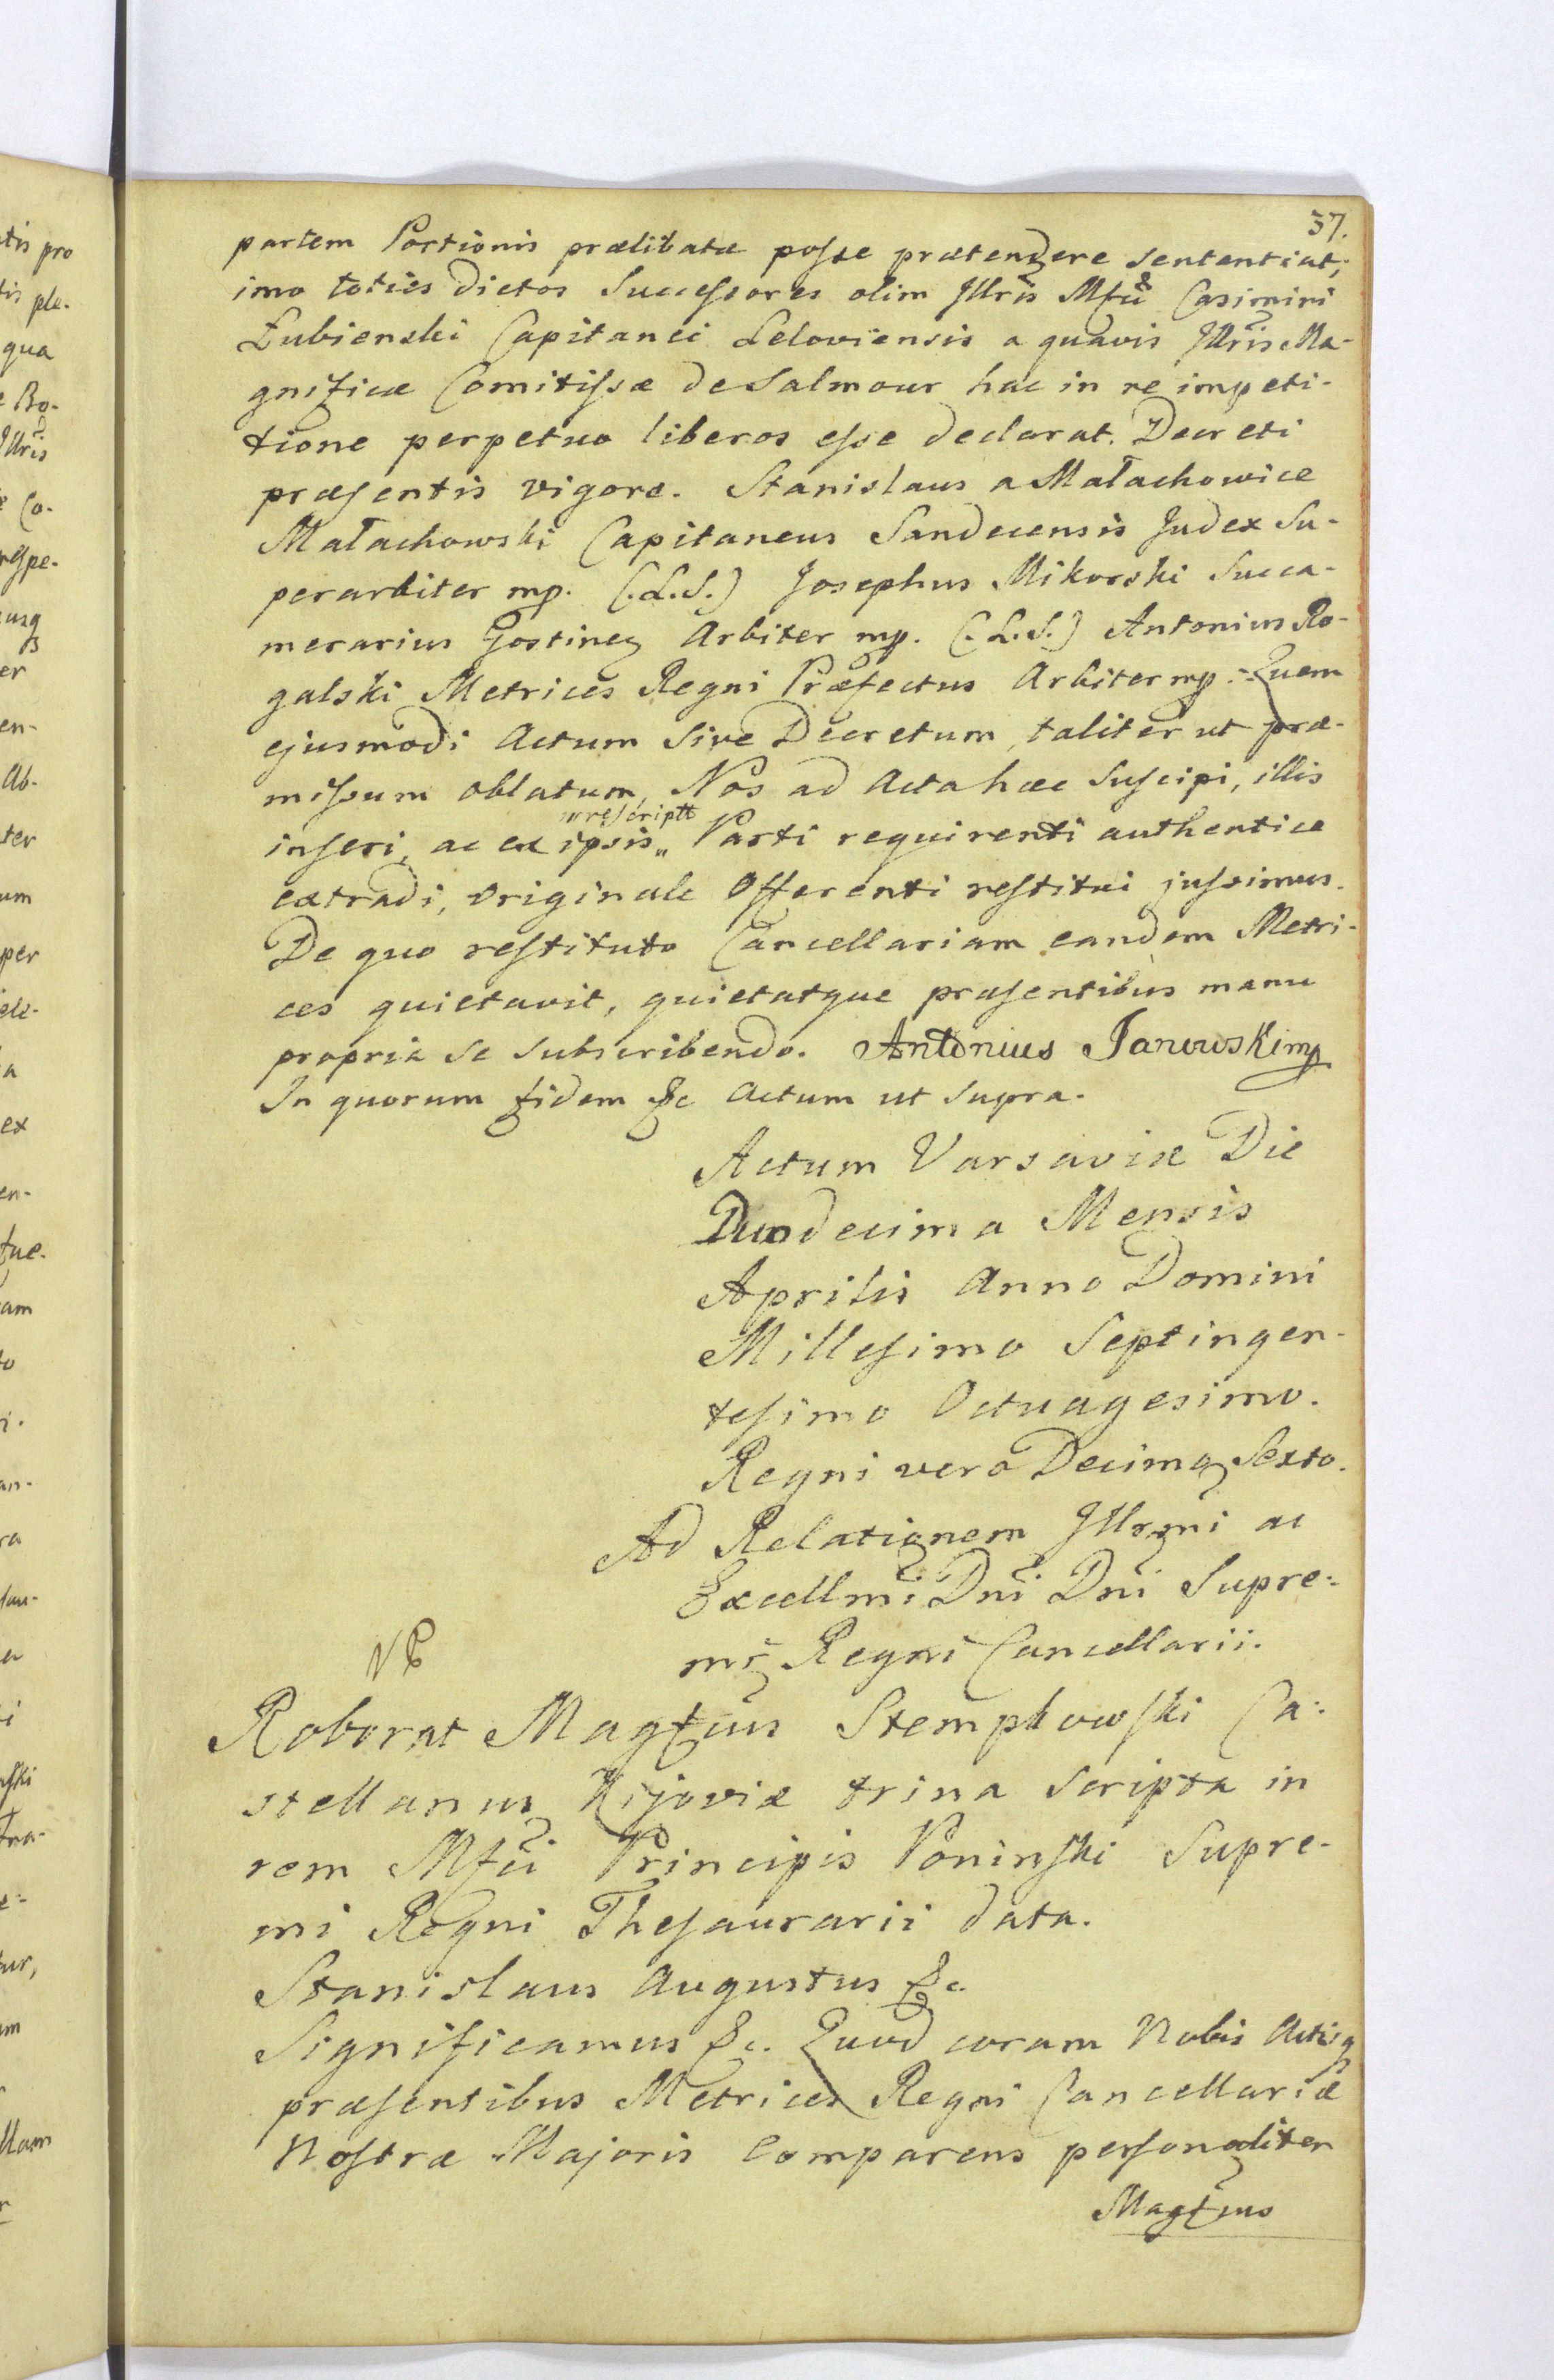 37.
partem Portionis prælibatæ posse prætendere sententiat;
imo toties dictos Successores olim Illris Mfci Casimiri
Łubienski Capitanei Leloviensis a quavis Illris Ma-
gnificæ Comitissæ de Salmour hac in re impeti-
tione perpetuo liberos esse declarat. Decreti
præsentis vigore. Stanislaus a Małachowice
Małachowski Capitaneus Sandecensis Judex Su-
perarbiter mp. (.L.S.) Josephus Mikorski Succa-
merarius Gostinen Arbiter mp. (.L.S.) Antonius Ro-
galski Metrices Regni Præfectus Arbiter mp.: Quem
ejusmodi Actum Sive Decretum, taliter ut præ-
missum oblatum, Nos ad Acta hæc Suscipi, illis
"rescriptt
inseri, ac ex ipsis„ Parti requirenti authentice
extradi, originale Offerenti restitui jussimus.
De quo restituto Cancellariam eandem Metri-
ces quietavit, quietatque præsentibus manu
propria se subscribendo. Antonius Janowski mp
In quorum fidem &c Actum ut supra.
Actum Varsaviæ Die
Duodecima Mensis
Aprilis Anno Domini
Millesimo Septingen-
tesimo Octuagesimo.
Regni vero Decimo Sexto.
Ad Relationem Illrmi ac
Excellmi Dni Dni Supre:
mi Regni Cancellarii.
Roborat Magfcus Stempkowski Ca:
stellanus Kijoviæ trina Scripta in
rem Mfci Principis Poninski Supre-
mi Regni Thesaurarii data.
Stanislaus Augustus &c.
Significamus &c. Quod coram Nobis Actisq
præsentibus Metrices Regni Cancellariæ
Nostræ Majoris Comparens personaliter
Magfcus